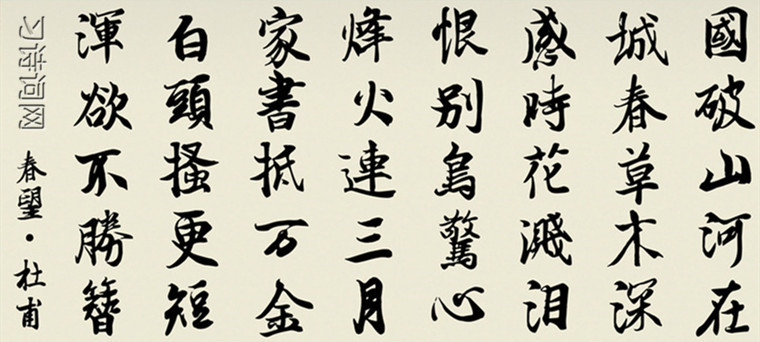 國破山河在
城春草木深
感時花濺泪
恨别鳥驚心
烽火連三月
家書抵万金
白頭搔更短
渾欲不勝簪
春望·杜甫
习诗词网